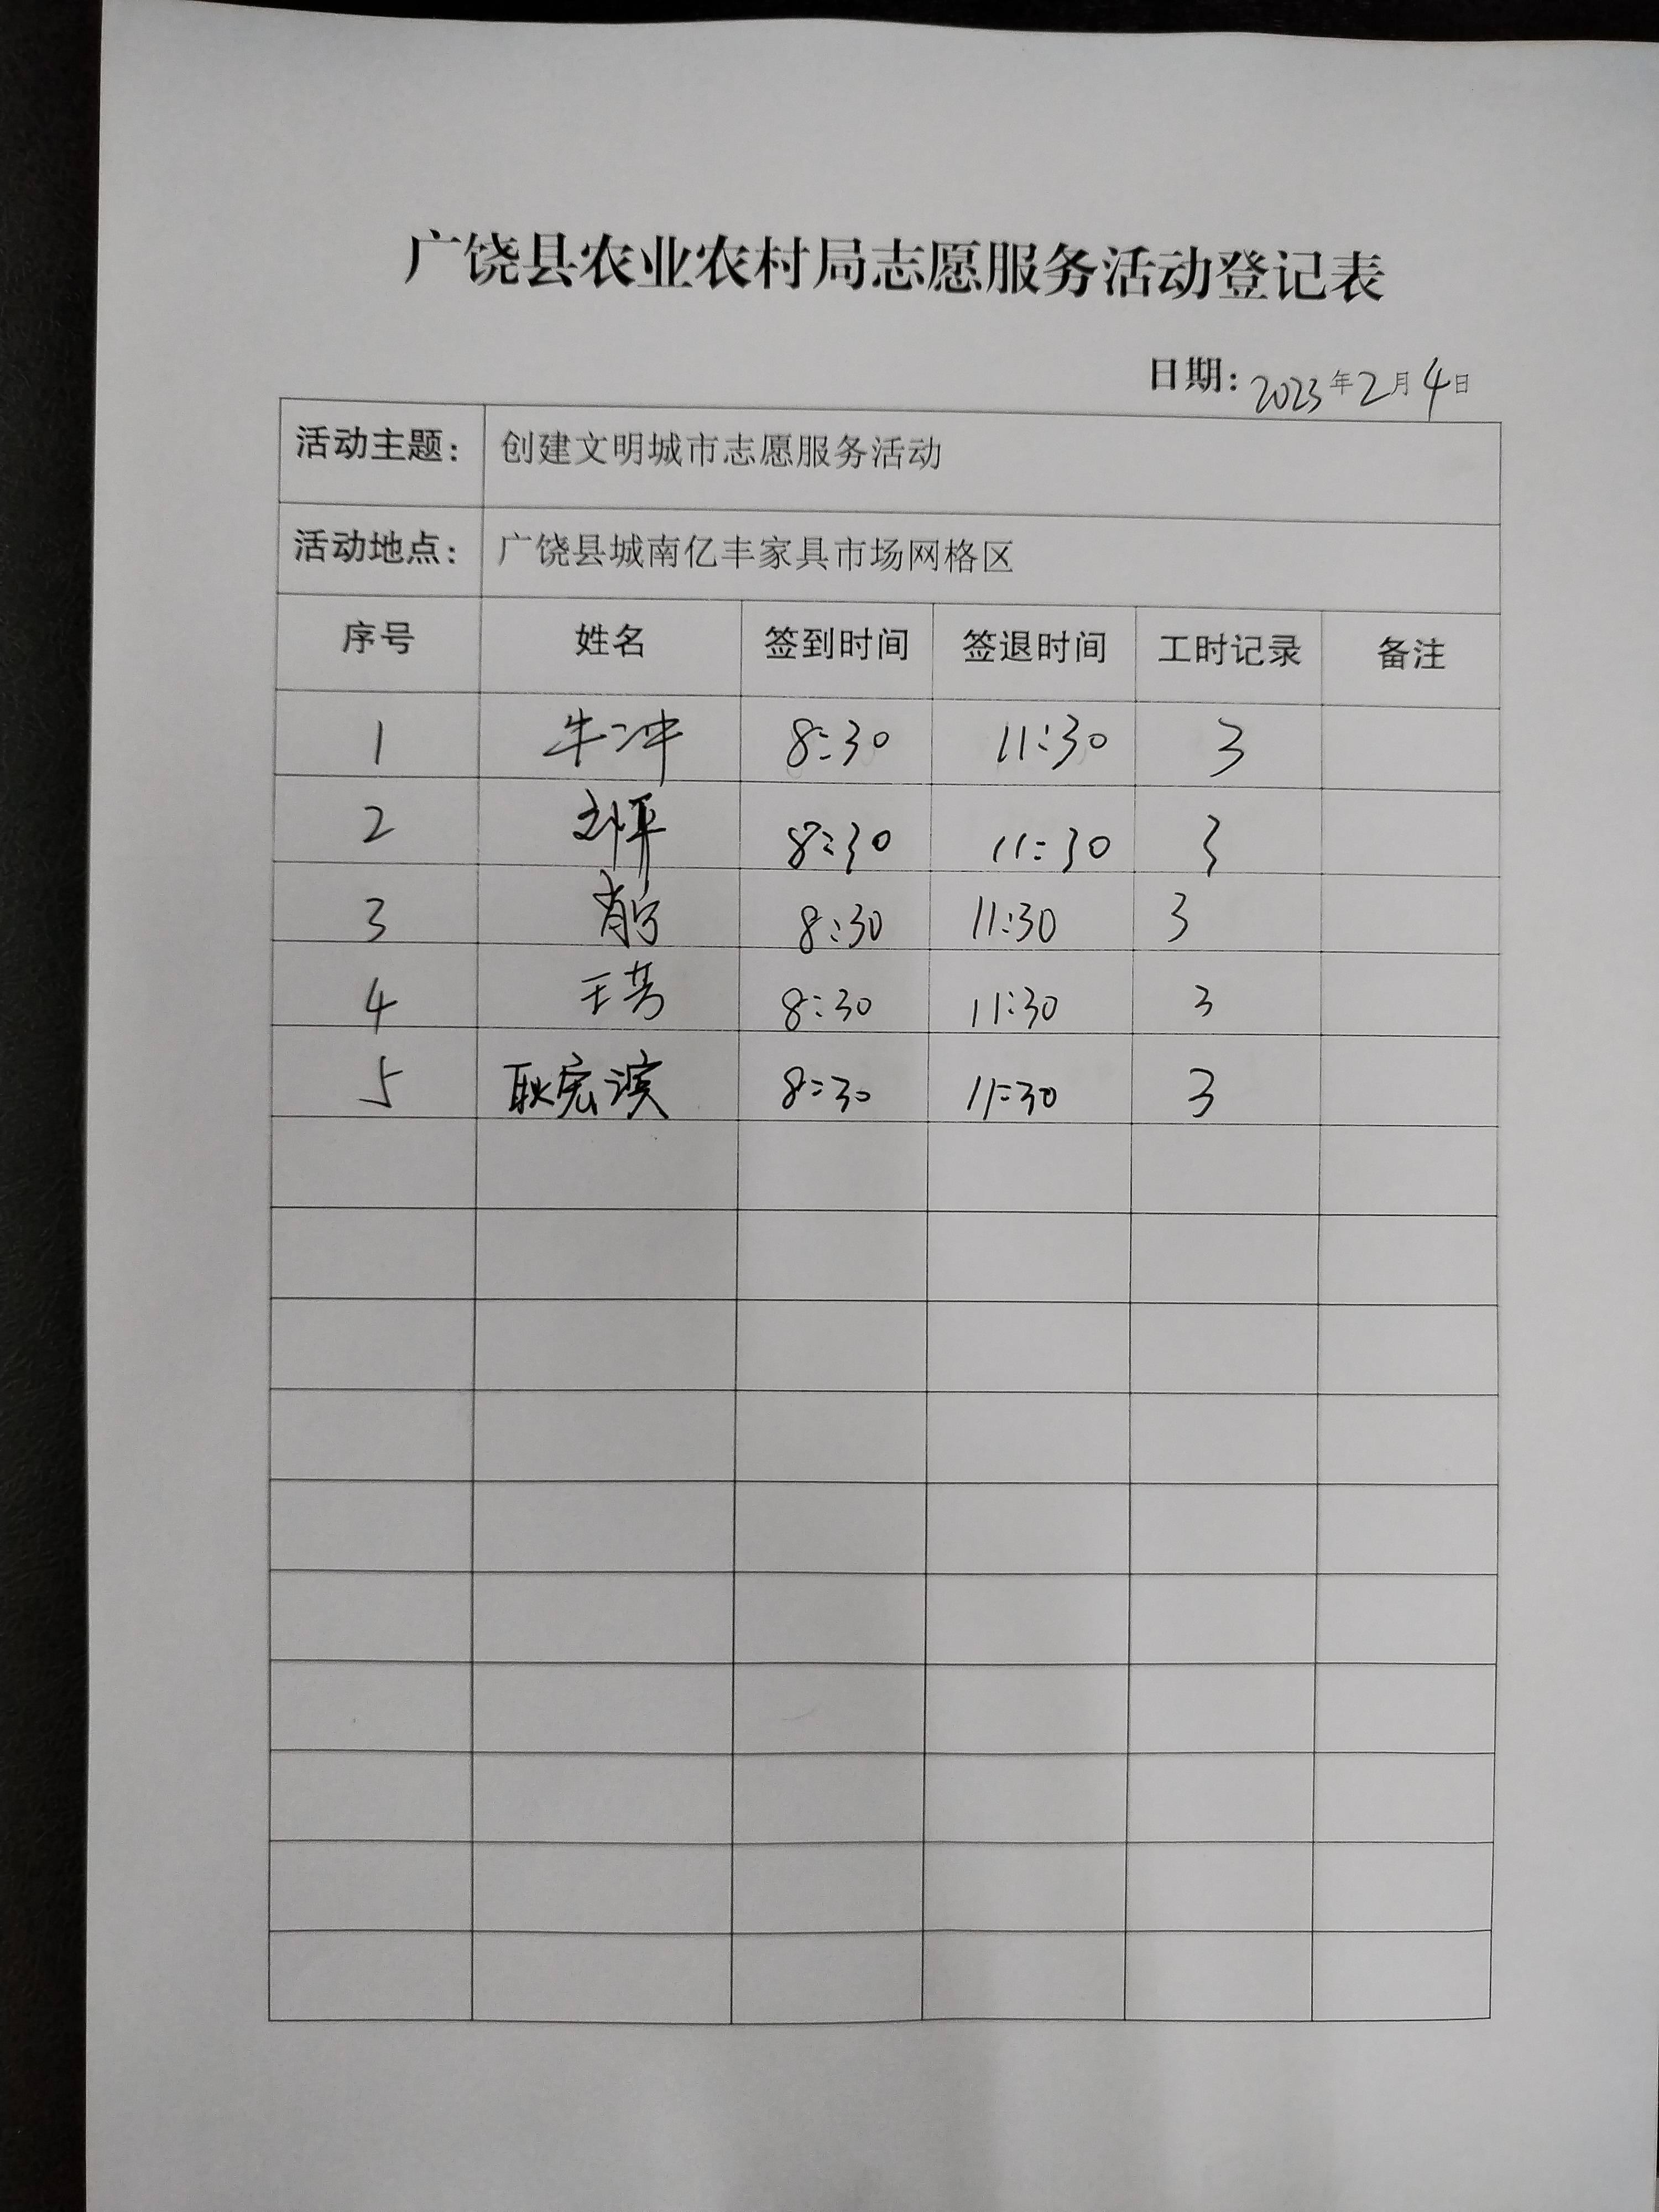 广饶县农业农村局志愿服务活动登记表
日期: 2023年2月4日
活动主题: 创建文明城市志愿服务活动
活动地点: 广饶县城南亿丰家具市场网格区
序号 姓名 签到时间 签退时间 工时记录 备注
1 牛冲 8:30 11:30 3
2 8:30 11:30 3
3 8:30 11:30 3
4 王芳 8:30 11:30 3
5 耿宪滨 8:30 11:30 3